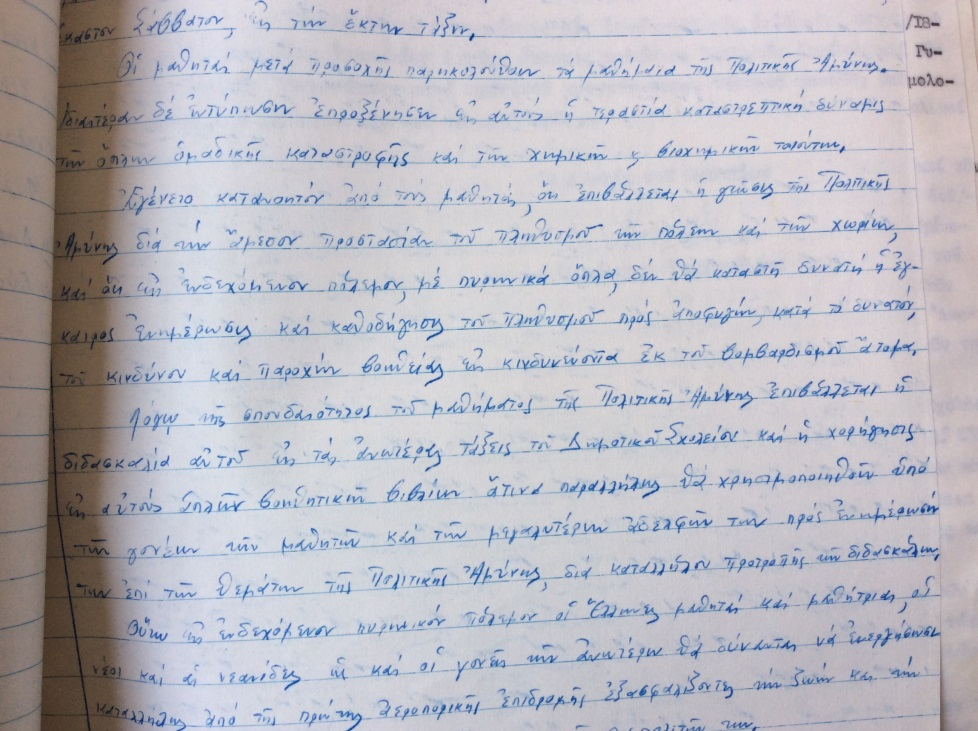 ἕκαστον Σάββατον, εἰς τήν ἕκτην τάξιν.
Οἱ μαθηταί μετά προσοχῆς παρηκολούθουν τά μαθήματα τῆς Πολιτικῆς Ἀμύνης.
Ἰδιαιτέραν δέ ἐντύπωσιν ἐπροξένησεν εἰς αὐτούς ἡ τεραστία καταστρεπτική δύναμις
τῶν ὅπλων ὁμαδικῆς καταστροφῆς καί τῶν χημικῶν ϗ βιοχημικῶν τοιούτων.
Ἐγένετο κατανοητόν ἀπό τούς μαθητάς, ὅτι ἐπιβάλλεται ἡ γνῶσις τῆς Πολιτικῆς
Ἀμύνης διά τήν ἄμεσον προστασίαν τοῦ πληθυσμοῦ τῶν πόλεων καί τῶν χωρίων,
καί ὅτι εἰς ἐνδεχόμενον πόλεμον, μέ πυρηνικά ὅπλα, δέν θά καταστῇ δυνατή ἡ ἔγ-
καιρος ἐνημέρωσις καί καθοδήγησις τοῦ πληθυσμοῦ πρός ἀποφυγήν, κατά τό δυνατόν,
τοῦ κινδύνου καί παροχήν βοηθείας εἰς κινδυνεύοντα ἐκ τοῦ βομβαρδισμοῦ ἄτομα.
Λόγῳ τῆς σπουδαιότητος τοῦ μαθήματος τῆς Πολιτικῆς Ἀμύνης ἐπιβάλλεται ἡ
διδασκαλία αὐτοῦ εἰς τάς ἀνωτέρας τάξεις τοῦ Δημοτικοῦ Σχολείου καί ἡ χορήγησις
εἰς αὐτούς ἁπλῶν βοηθητικῶν βιβλίων ἅτινα παραλλήλως θά χρησιμοποιηθοῦν ὑπό
τῶν γονέων τῶν μαθητῶν καί τῶν μεγαλυτέρων ἀδελφῶν των πρός ἐνημέρωσίν
των ἐπί τῶν θεμάτων τῆς Πολιτικῆς Ἀμύνης, διά καταλλήλου προτροπῆς τῶν διδασκάλων.
Οὕτω εἰς ἐνδεχόμενον πυρηνικόν πόλεμον οἱ Ἕλληνες μαθηταί καί μαθήτριαι, οἱ
νέοι καί αἱ νεανίδες ὡς καί οἱ γονεῖς τῶν ἀνωτέρω θά δύνανται νά ἐνεργήσωσι
καταλλήλως ἀπό τῆς πρώτης ἀεροπορικῆς ἐπιδρομῆς ἐξασφαλίζοντες τήν ζωήν καί τήν
των.
/ΙΒ-
Γυ-
μολο-